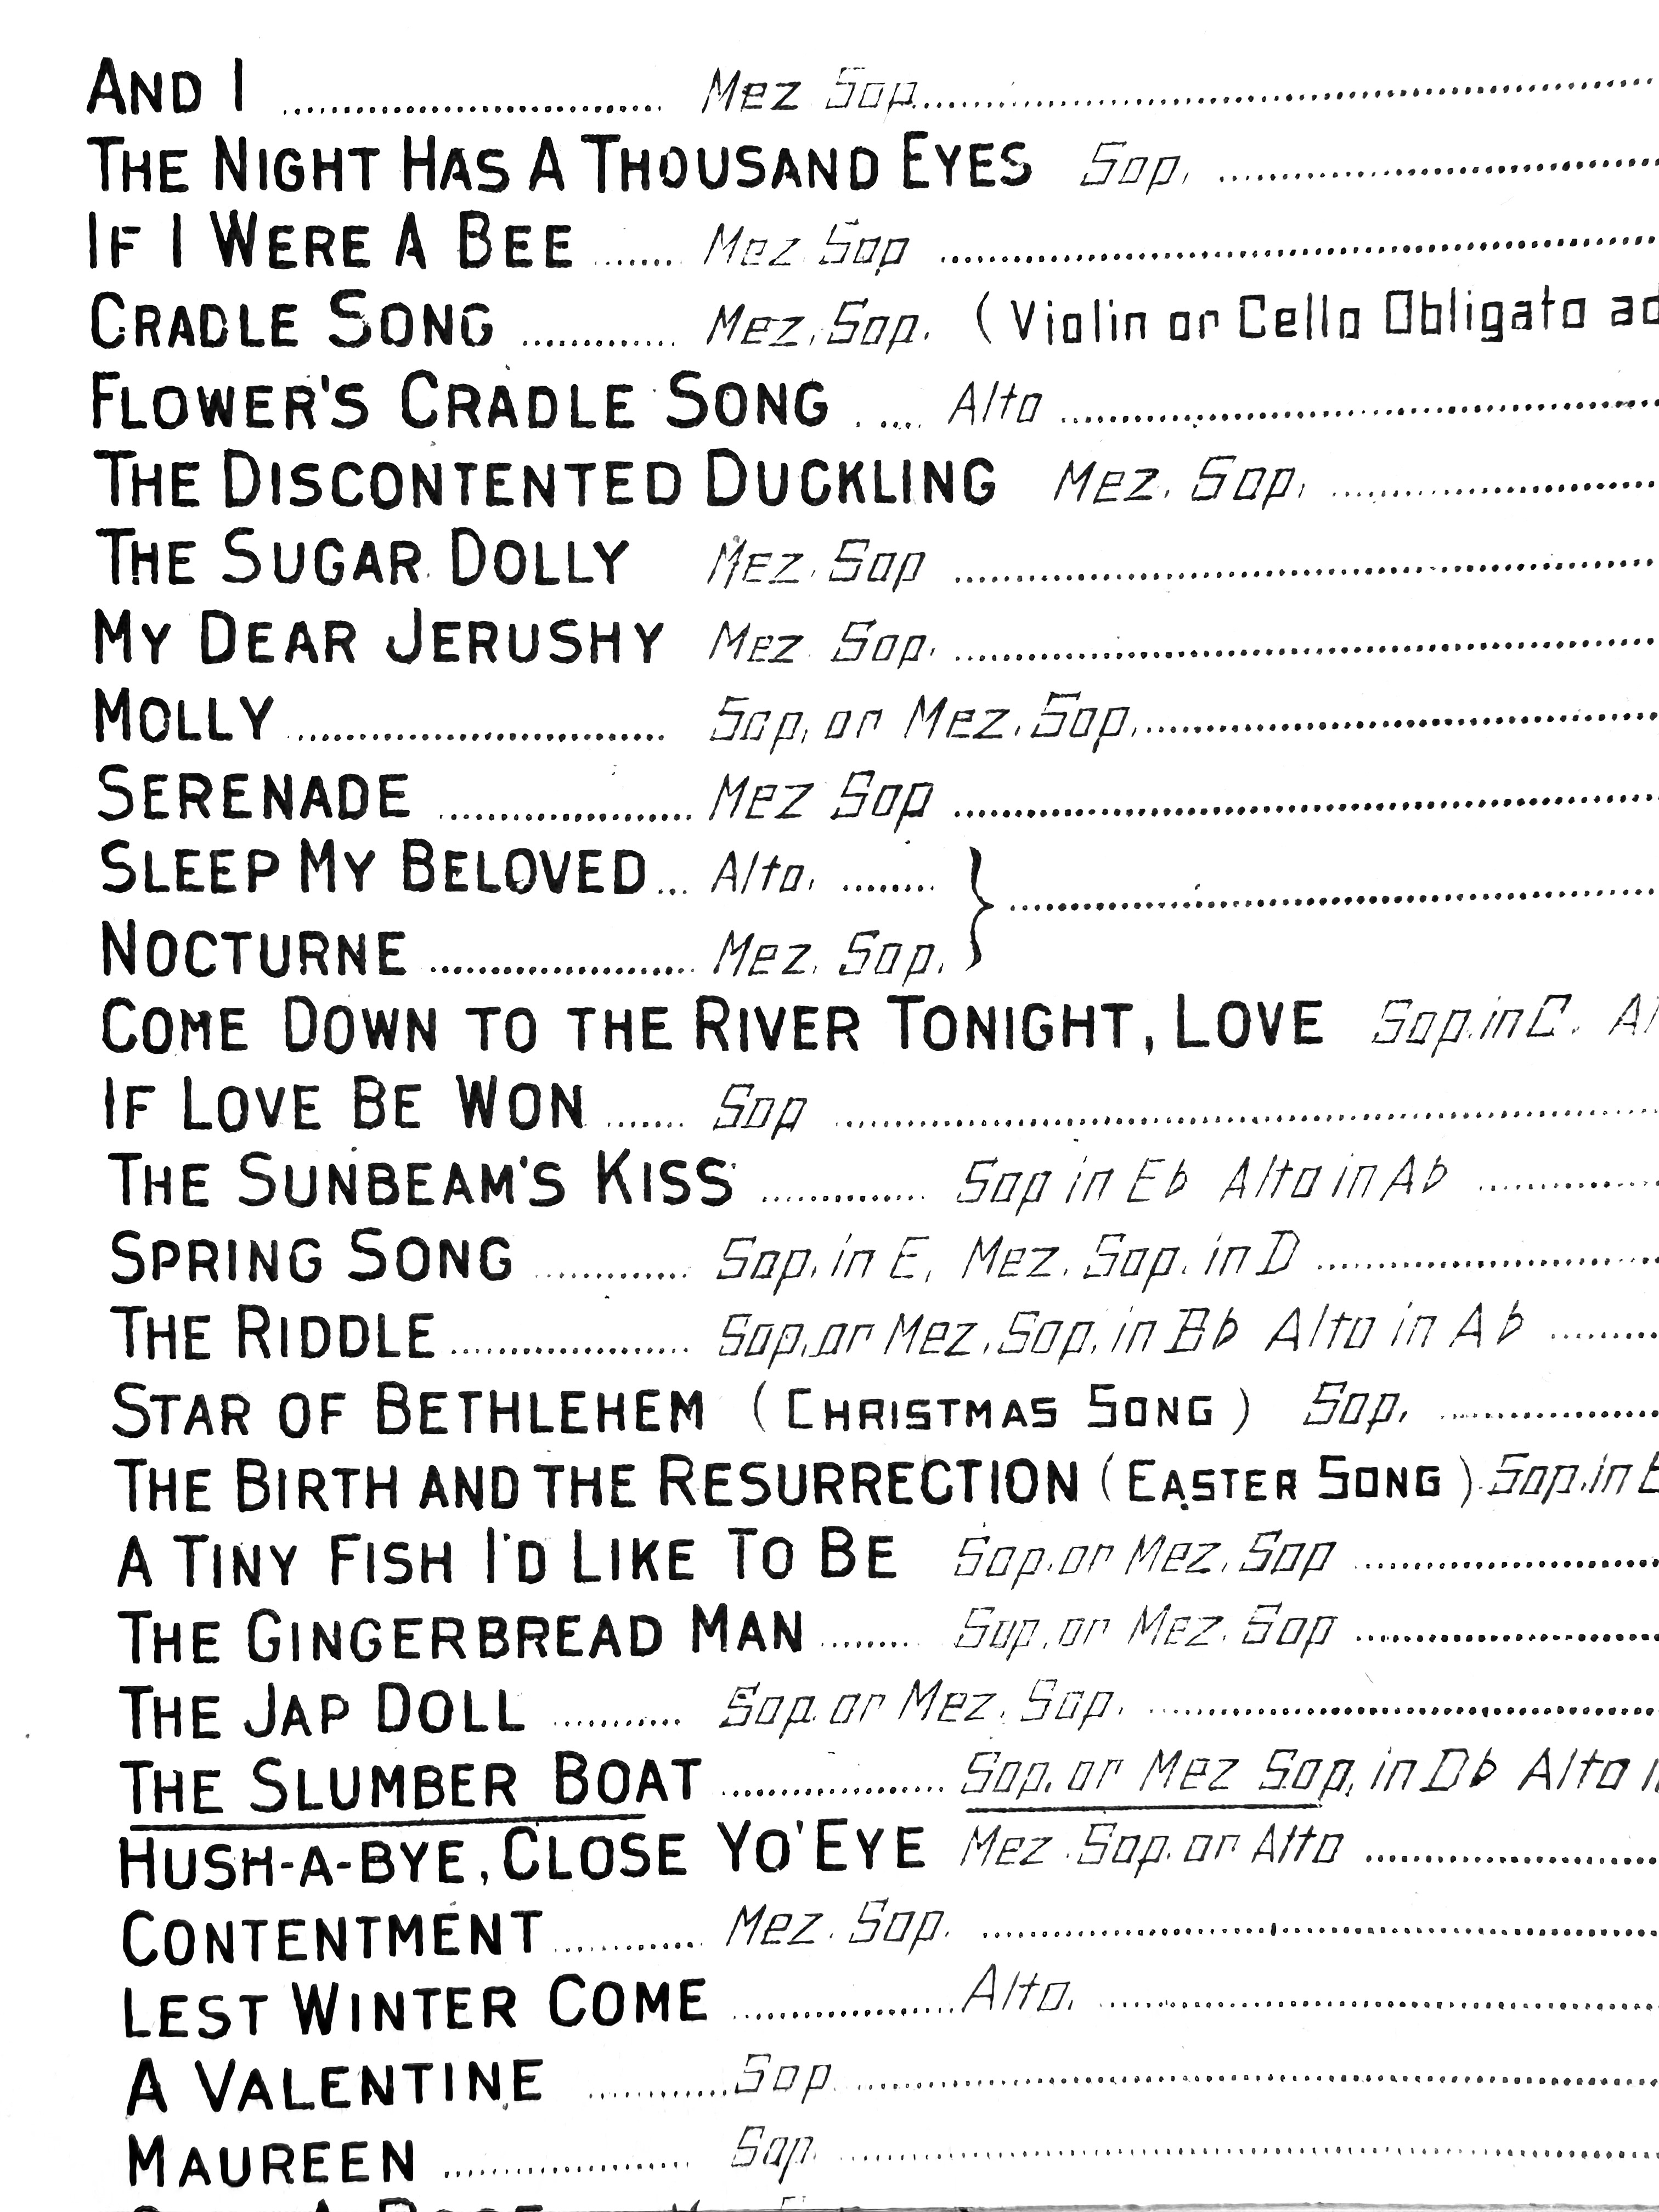 AND I ........ Mez Sop........
THE NIGHT HAS A THOUSAND EYES Sop. ........
IF I WERE A BEE ....... Mez. Sop ........
CRADLE SONG ........ Mez. Sop. (Violin or Cello Obligato ad
FLOWER'S CRADLE SONG ..... Alto ........
THE DISCONTENTED DUCKLING Mez. Sop. ........
THE SUGAR DOLLY Mez. Sop ........
MY DEAR JERUSHY Mez. Sop. ........
MOLLY ........ Sop. or Mez. Sop. ........
SERENADE ........ Mez Sop ........
SLEEP MY BELOVED... Alto. ........ }
NOCTURNE ........ Mez. Sop. } ........
COME DOWN TO THE RIVER TONIGHT, LOVE Sop. in C. Al
IF LOVE BE WON ....... Sop ........
THE SUNBEAM'S KISS ........ Sop in E♭ Alto in A♭ ........
SPRING SONG ........ Sop. in E, Mez. Sop. in D ........
THE RIDDLE ........ Sop. or Mez. Sop. in B♭ Alto in A♭ ........
STAR OF BETHLEHEM (CHRISTMAS SONG) Sop. ........
THE BIRTH AND THE RESURRECTION (EASTER SONG). Sop. in E
A TINY FISH I'D LIKE TO BE Sop. or Mez. Sop ........
THE GINGERBREAD MAN ........ Sop. or Mez. Sop ........
THE JAP DOLL ........ Sop. or Mez. Sop. ........
THE SLUMBER BOAT ........ Sop. or Mez Sop. in D♭ Alto i
HUSH-A-BYE, CLOSE YO' EYE Mez. Sop. or Alto ........
CONTENTMENT ........ Mez. Sop. ........
LEST WINTER COME ........ Alto. ........
A VALENTINE ........ Sop. ........
MAUREEN ........ Sop. ........